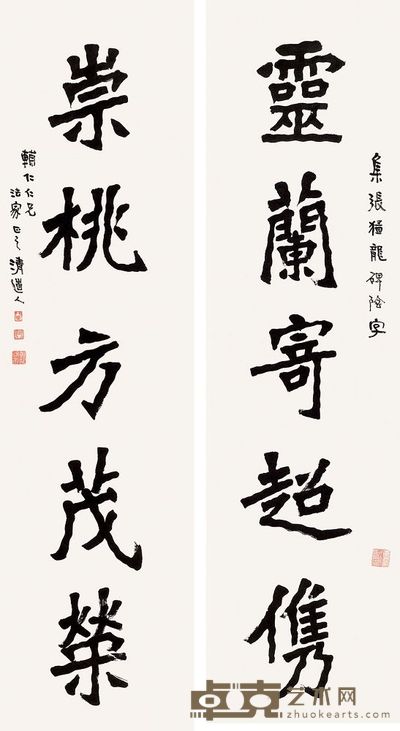 集張猛龍碑陰字
靈蘭寄超儁
崇桃方茂榮
輔仁仁兄
法家正之 清道人
卓克艺术网
zhuokearts.com